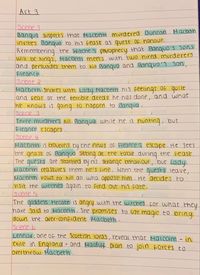 Act 3
Scene 1
Banquo suspects that Macbeth murdered Duncan. Macbeth
invites Banquo to his feast as guest of honour.
Remembering the Witches' prophecy that Banquo's sons
will be kings, Macbeth meets with two hired murderers
and persuades them to kill Banquo and Banquo's son,
Fleance.
Scene 2
Macbeth shares with Lady Macbeth his feelings of guilt
and fear at the terrible deeds he has done, and what
he knows is going to happen to Banquo.
Scene 3
Three murderers kill Banquo while he is hunting, but
Fleance escapes.
Scene 4
Macbeth is troubled by the news of Fleance's escape. He sees
the ghost of Banquo sitting at the table during the feast.
The guests are startled by his strange behaviour, but Lady
Macbeth reassures them he's fine. When the guests leave,
Macbeth vows to kill all who oppose him. He decides to
visit the witches again to find out his fate.
Scene 5
The goddess Hecate is angry with the witches for what they
have said to Macbeth. She promises to use magic to bring
down the over-confident Macbeth.
Scene 6
Lennox, one of the Scottish lords, reveals that Malcolm - in
exile in England - and Macduff plan to join forces to
overthrow Macbeth.